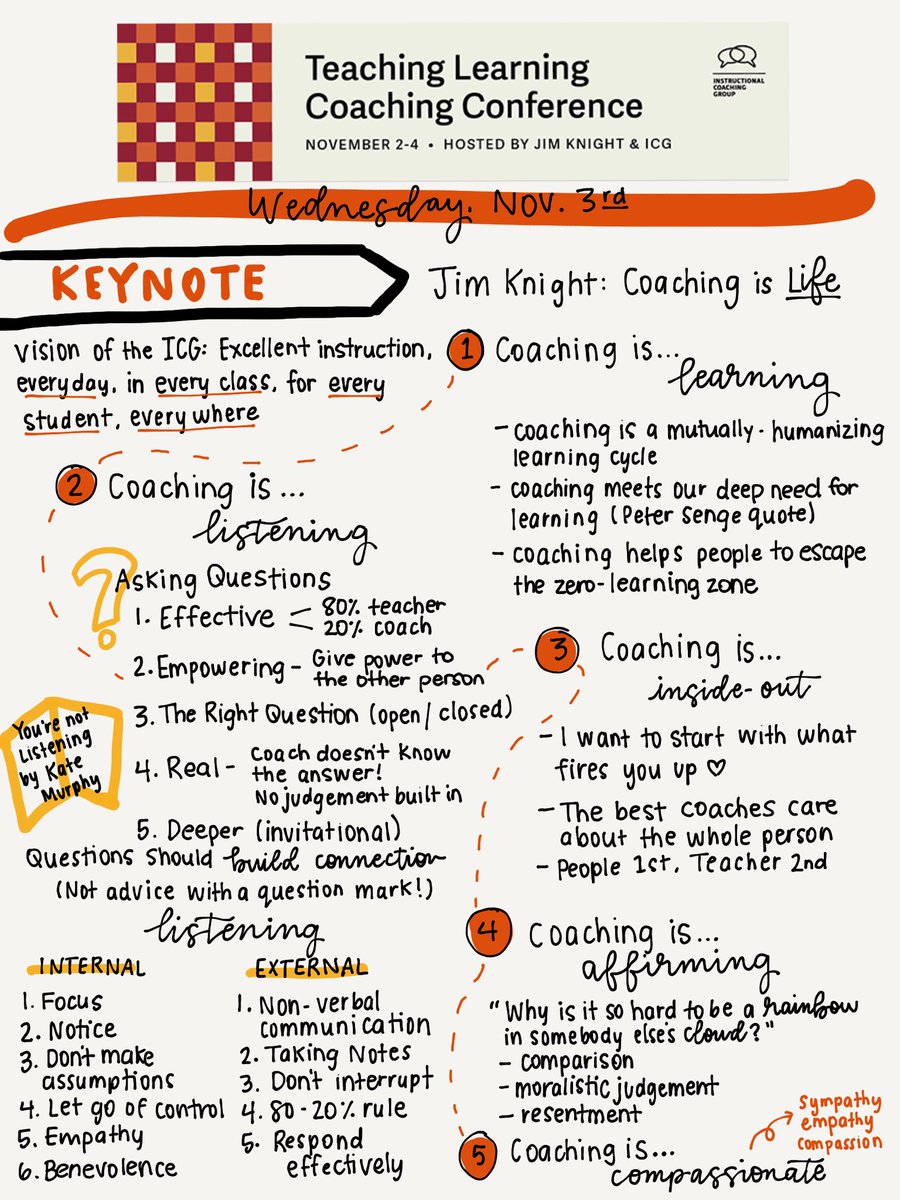 Teaching Learning
Coaching Conference
NOVEMBER 2-4 • HOSTED BY JIM KNIGHT & ICG
INSTRUCTIONAL
COACHING
GROUP
Wednesday, Nov. 3rd
KEYNOTE
Jim Knight: Coaching is Life
Vision of the ICG: Excellent instruction,
everyday, in every class, for every
student, every where
1 Coaching is...
learning
- coaching is a mutually-humanizing
learning cycle
- coaching meets our deep need for
learning (Peter Senge quote)
- coaching helps people to escape
the zero-learning zone
2 Coaching is...
listening
? Asking Questions
1. Effective < 80% teacher
20% coach
2. Empowering - Give power to
the other person
3. The Right Question (open/closed)
4. Real - Coach doesn't know
the answer!
No judgement built in
5. Deeper (invitational)
You're not
Listening
by Kate
Murphy
Questions should build connection
(Not advice with a question mark!)
listening
INTERNAL
1. Focus
2. Notice
3. Don't make
assumptions
4. Let go of control
5. Empathy
6. Benevolence
EXTERNAL
1. Non-verbal
communication
2. Taking Notes
3. Don't interrupt
4. 80-20% rule
5. Respond
effectively
3 Coaching is...
inside-out
- I want to start with what
fires you up ♡
- The best coaches care
about the whole person
- People 1st, Teacher 2nd
4 Coaching is...
affirming
"Why is it so hard to be a rainbow
in somebody else's cloud?"
- comparison
- moralistic judgement
- resentment
5 Coaching is...
compassionate
Sympathy
empathy
compassion